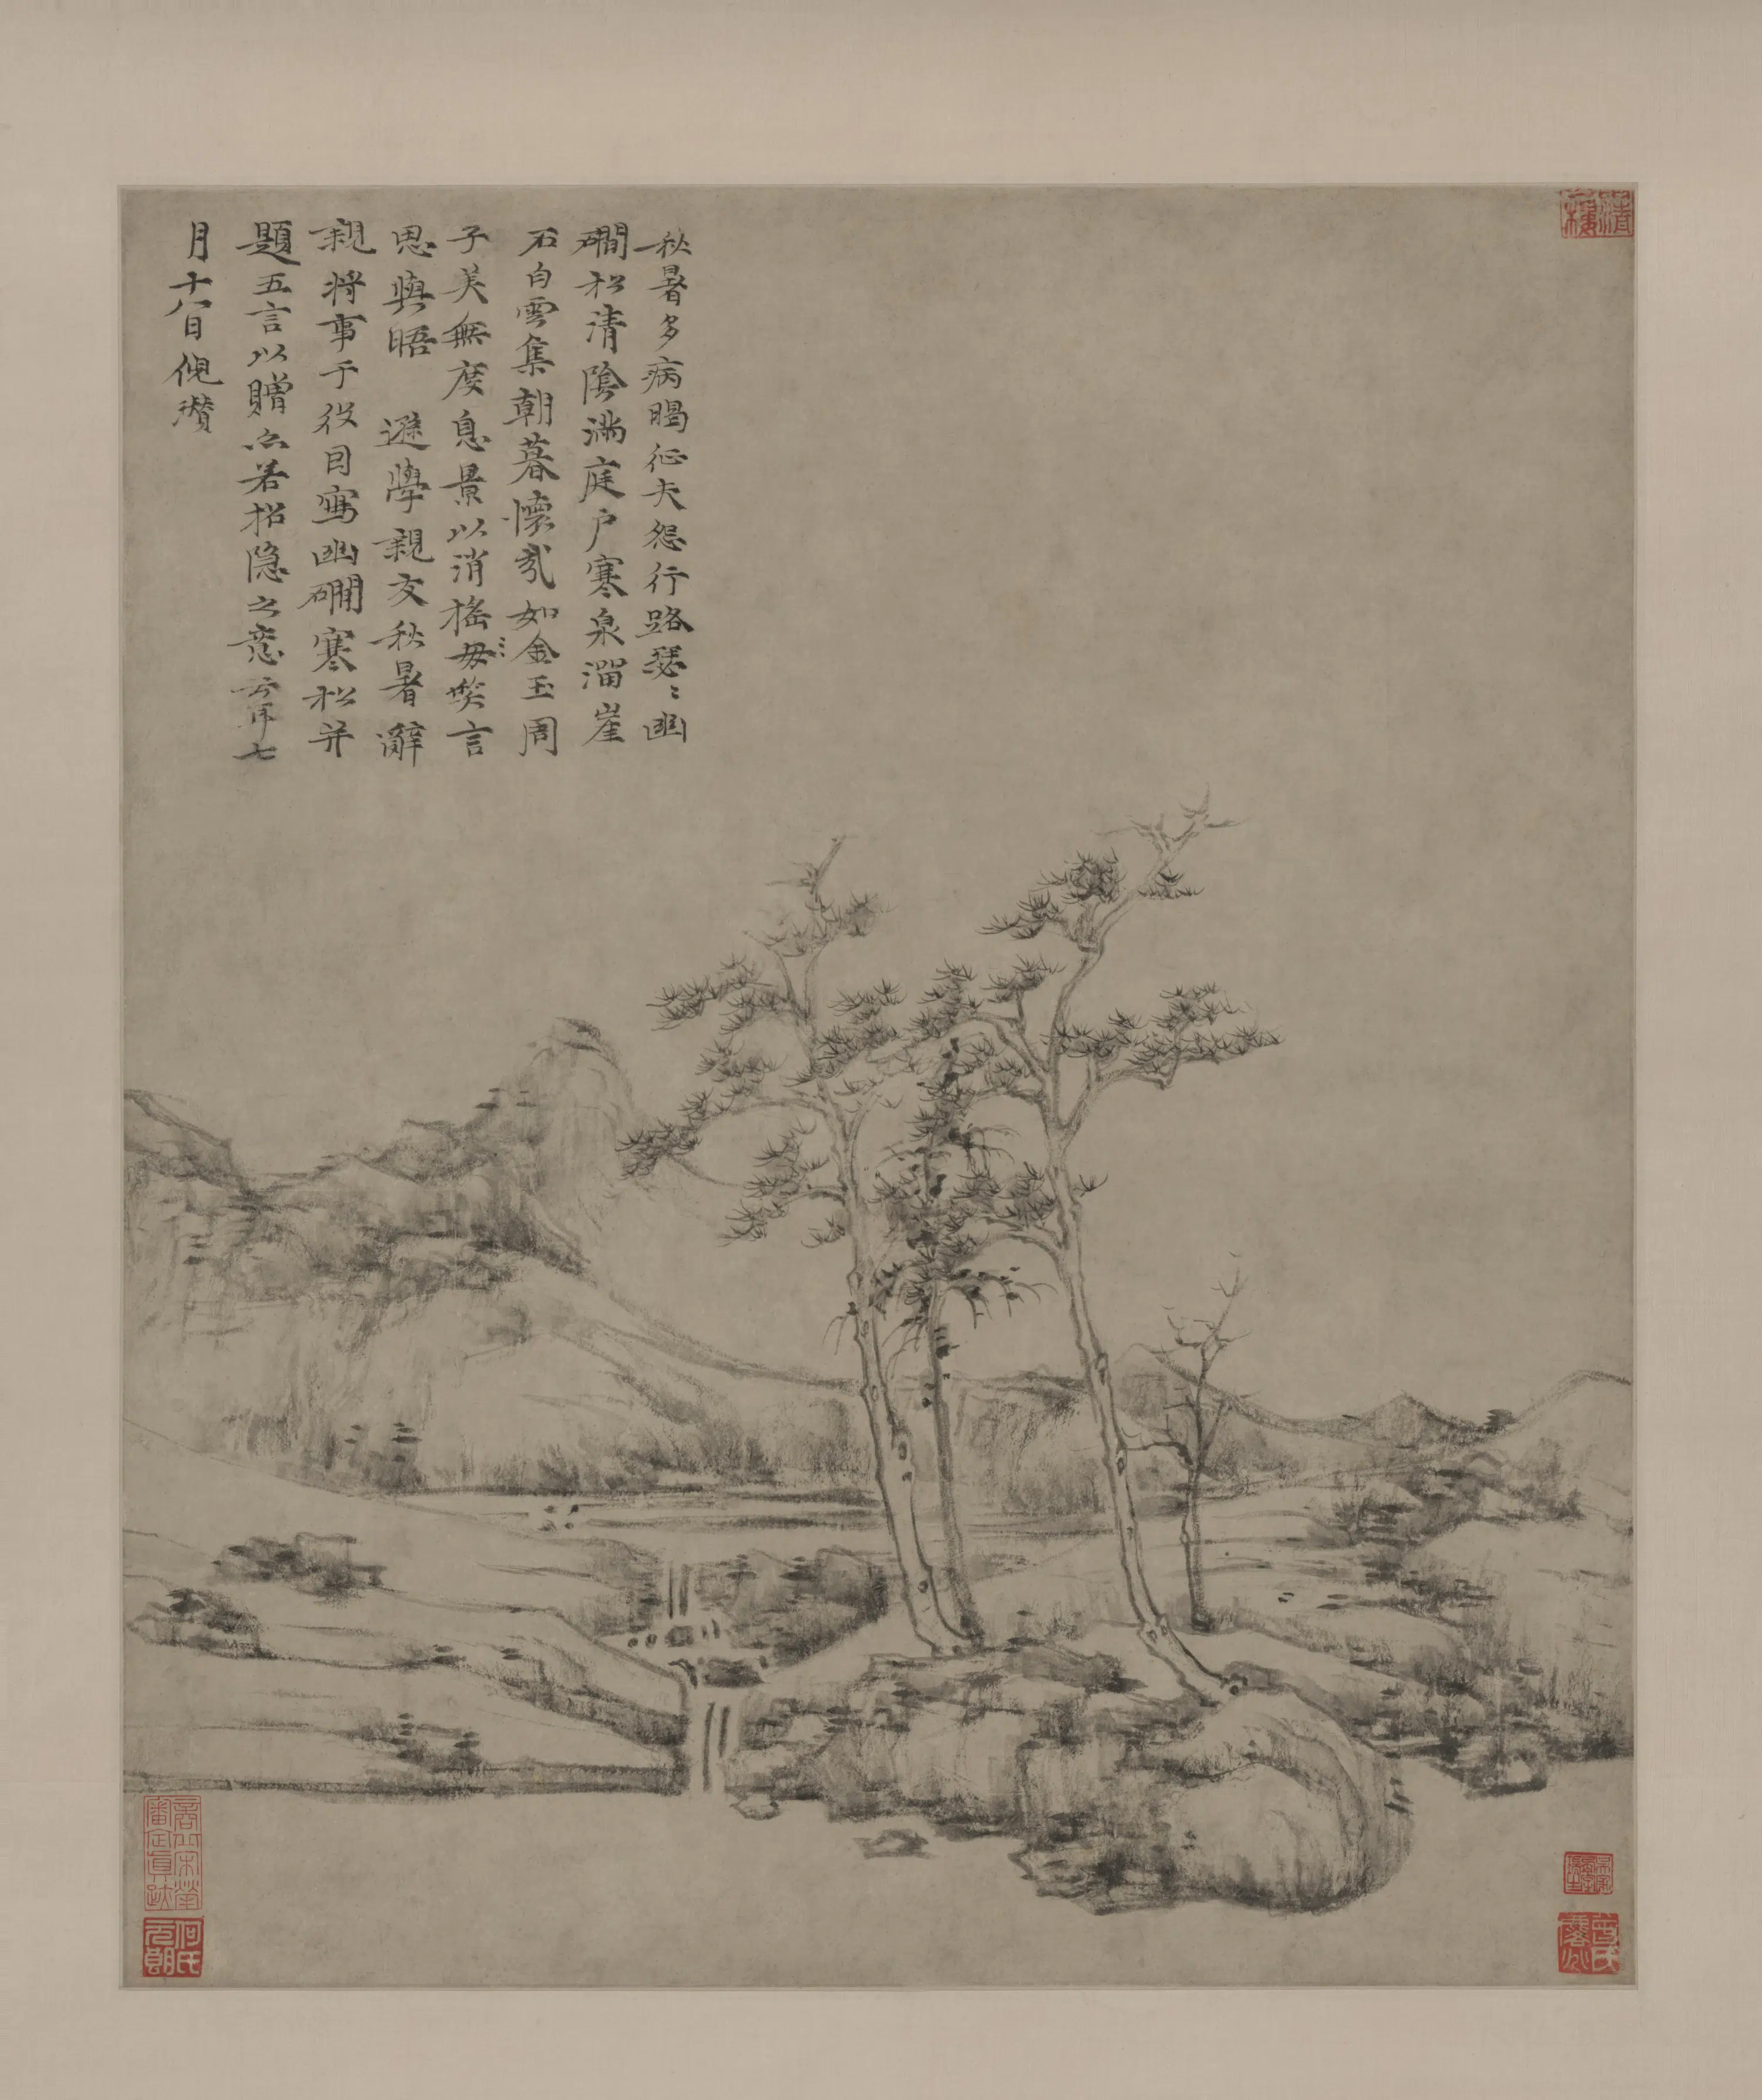 秋暑多病暍征夫怨行路瑟〻幽
磵松清陰滿庭户寒泉溜崖
石白雲集朝暮懷哉如金玉周
子美無度息景以消搖毋𥬇言
思與晤 遜學親友秋暑辭
親將事于役因寫幽磵寒松并
題五言以贈亦若招隱之意云耳七
月十八日倪瓚
清
樓
商丘宋犖
審定真跡
何氏
元朗